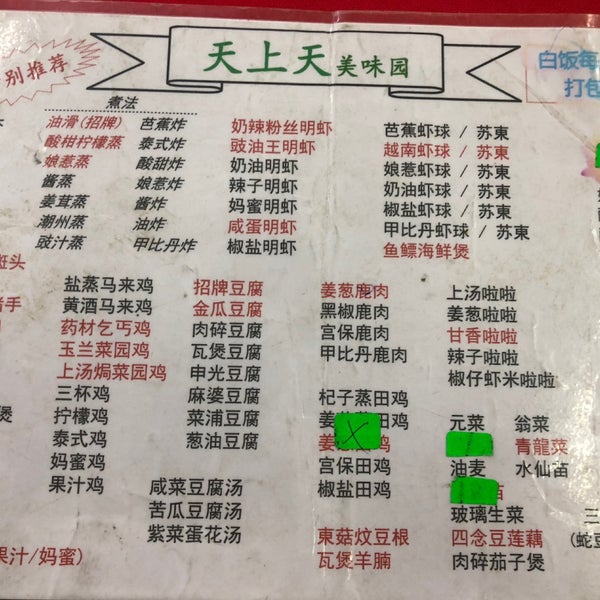 别推荐
天上天美味园
白饭每
打包
煮法
油滑(招牌) 芭蕉炸
酸柑柠檬蒸 泰式炸
娘惹蒸 酸甜炸
酱蒸 娘惹炸
姜茸蒸 酱炸
潮州蒸 油炸
豉汁蒸 甲比丹炸
奶辣粉丝明虾
豉油王明虾
奶油明虾
辣子明虾
妈蜜明虾
咸蛋明虾
椒盐明虾
芭蕉虾球 / 苏東
越南虾球 / 苏東
娘惹虾球 / 苏東
奶油虾球 / 苏東
椒盐虾球 / 苏東
甲比丹虾球 / 苏東
鱼鳔海鲜煲
斑头
猪手
煲
盐蒸马来鸡
黄酒马来鸡
药材乞丐鸡
玉兰菜园鸡
上汤焗菜园鸡
三杯鸡
拧檬鸡
泰式鸡
妈蜜鸡
果汁鸡
招牌豆腐
金瓜豆腐
肉碎豆腐
瓦煲豆腐
申光豆腐
麻婆豆腐
菜浦豆腐
葱油豆腐
咸菜豆腐汤
苦瓜豆腐汤
紫菜蛋花汤
姜葱鹿肉
黑椒鹿肉
宫保鹿肉
甲比丹鹿肉
杞子蒸田鸡
田鸡
姜 鸡
宫保田鸡
椒盐田鸡
東菇炆豆根
瓦煲羊腩
上汤啦啦
姜葱啦啦
甘香啦啦
辣子啦啦
椒仔虾米啦啦
元菜 翁菜
青龍菜
油麦 水仙苗
苗
玻璃生菜
四念豆莲藕
肉碎茄子煲
三
(蛇豆
果汁/妈蜜)